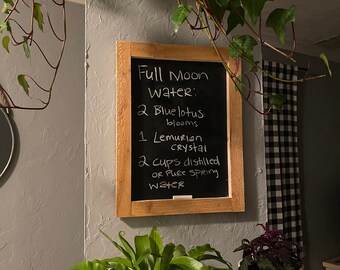 Full Moon
Water:
2 Bluelotus
blooms
1 Lemurion
crystal
2 cups distilled
or pure spring
water